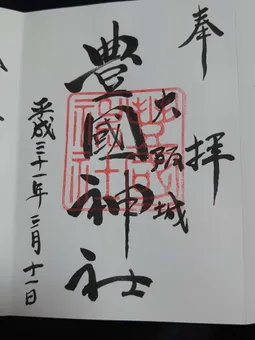 奉拝
大阪城
豊國神社
平成三十一年三月十一日